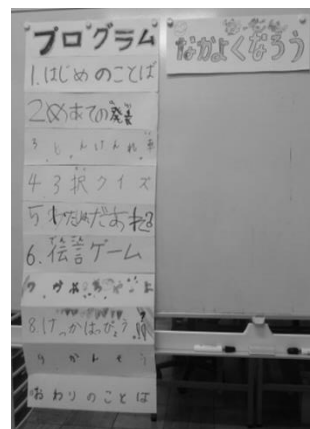 プログラム
1.はじめのことば
2.めあての発表
4.3択クイズ
5.わたしはだあれ?
6.伝言ゲーム
8.けっかはっぴょう
9.かんそう
おわりのことば
なかよくなろう